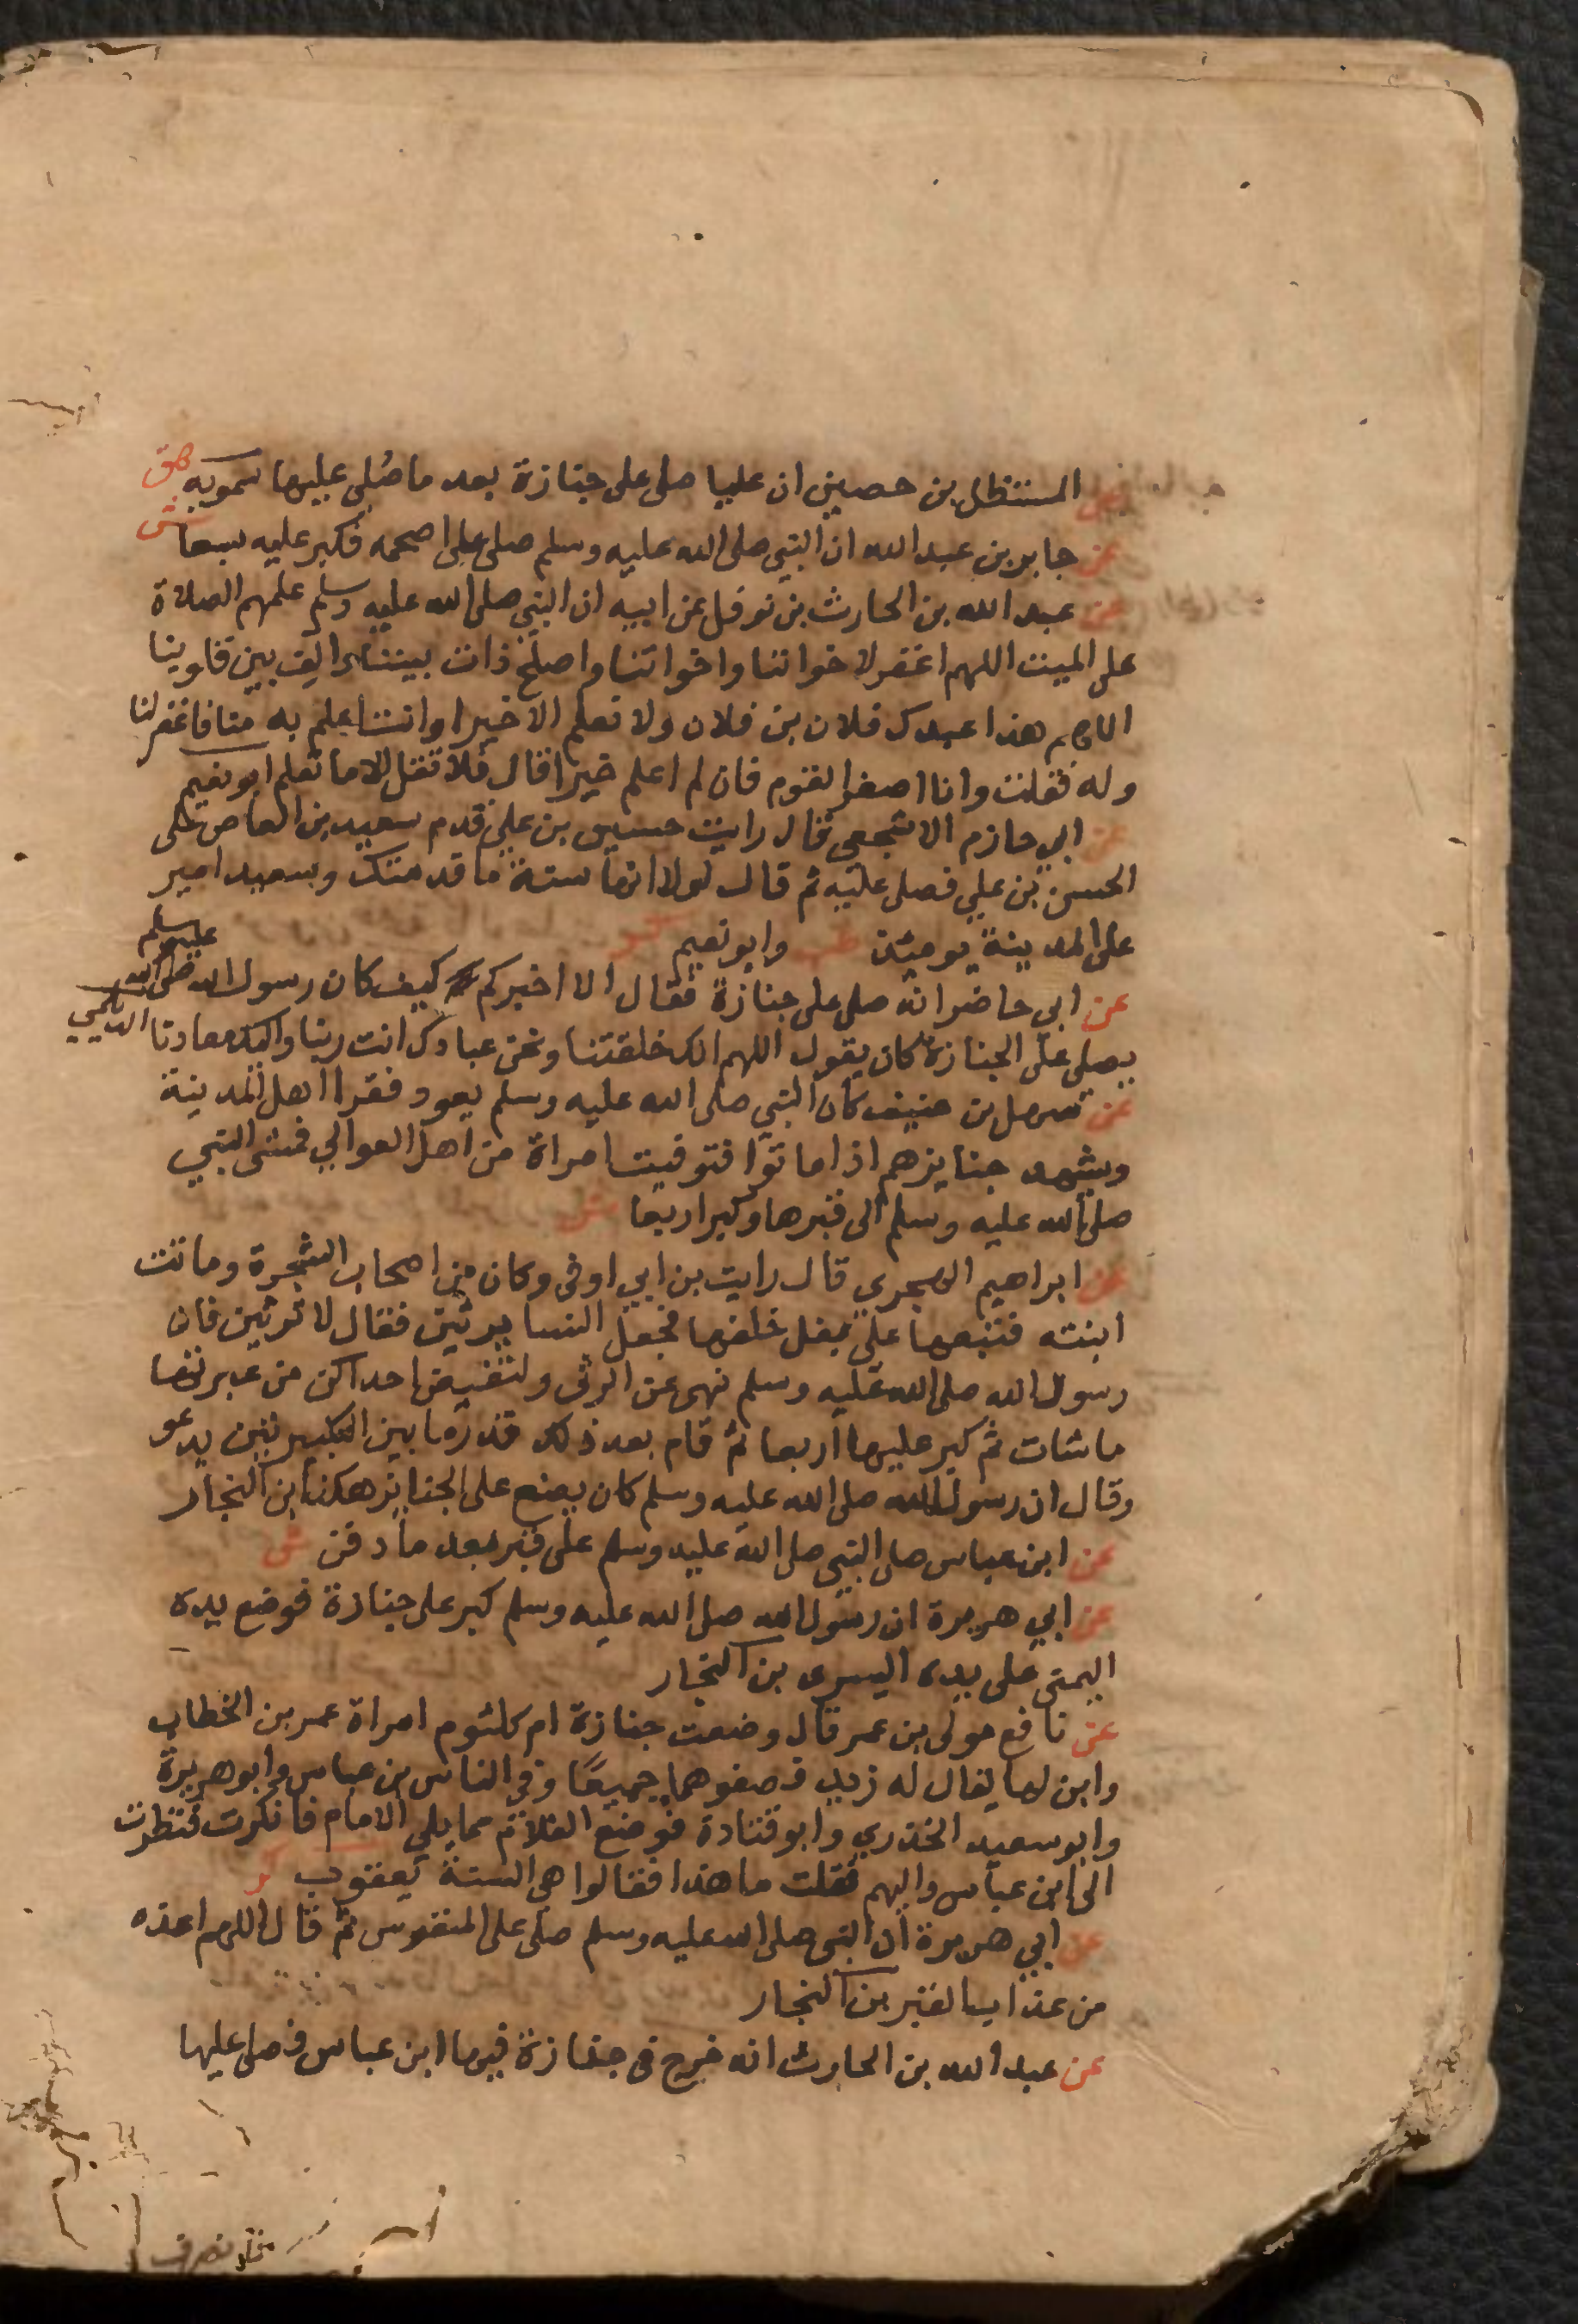 عن المستظل بن حصين ان عليا صلى على جنازة بعد ما صُلي عليها سمويه هق
عن جابر بن عبد الله ان النبي صلى الله عليه وسلم صلى على اصحمه فكبر عليه سبعا ش
عن عبد الله بن الحارث بن نوفل عن ابيه ان النبي صلى الله عليه وسلم علمهم الصلاة
على الميت اللهم اغفر لاخواننا واخواتنا واصلح ذات بيننا والف بين قلوبنا
اللهم هذا عبدك فلان بن فلان ولا نعلم الا خيرا وانت اعلم به منا فاغفر لنا
وله فقلت وانا اصغر القوم فان لم اعلم خيرا قال فلا تقل الا ما تعلم ابو نعيم
عن ابي حازم الاشجعي قال رايت حسين بن علي قدم سعيد بن العاص على
الحسن بن علي فصلى عليه ثم قال لولا انها سنة ما قدمتك وسعيد امير
على المدينة يومئذ طب وابو نعيم كر
عن ابي حاضر انه صلى على جنازة فقال الا اخبركم كيف كان رسول الله صلى الله عليه وسلم
يصلي على الجنازة كان يقول اللهم انك خلقتنا ونحن عبادك انت ربنا واليك معادنا الديلمي
عن سهل بن حنيف كان النبي صلى الله عليه وسلم يعود فقرا اهل المدينة
ويشهد جنايزهم اذا ماتوا فتوفيت امراة من اهل العوالي فمشى النبي
صلى الله عليه وسلم الى قبرها وكبر اربعا ش
عن ابراهيم الهجري قال رايت بن ابي اوفى وكان من اصحاب الشجرة وماتت
ابنته فتبعها على بغل خلفها فجعل النسا يرثين فقال لا ترثين فان
رسول الله صلى الله عليه وسلم نهى عن الرثى ولتفيض احداكن من عبرتها
ما شات ثم كبر عليها اربعا ثم قام بعد ذلك قدر ما بين التكبيرتين يدعو
وقال ان رسول الله صلى الله عليه وسلم كان يصنع على الجنايز هكذا بن النجار
عن ابن عباس صلى النبي صلى الله عليه وسلم على قبر بعد ما دفن ش
عن ابي هريرة ان رسول الله صلى الله عليه وسلم كبر على جنازة فوضع يده
اليمنى على يده اليسرى بن النجار
عن نافع مولى بن عمر قال وضعت جنازة ام كلثوم امراة عمر بن الخطاب
وابن لها يقال له زيد فصفوهما جميعًا وفي الناس بن عباس وابو هريرة
وابو سعيد الخدري وابو قتادة فوضع الغلام مما يلي الامام فانكرت فنظرت
الى ابن عباس واليهم فقلت ما هذا فقالوا هي السنة يعقوب كر
عن ابي هريرة ان النبي صلى الله عليه وسلم صلى على المنفوس ثم قال اللهم اعذه
من عذاب القبر بن النجار
عن عبد الله بن الحارث انه خرج في جنازة فيها ابن عباس فصلى عليها